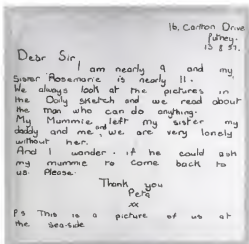 16, Carlton Drive
Putney.
13 8 57.
Dear Sir
I am nearly 9 and my
Sister Rosemarie is nearly 11.
We always look at the pictures in
the Daly sketch and we read about
the man who can do anything.
My Mummie left my sister my
daddy and me, and we are very lonely
without her.
And I wonder if he could ask
my mummie to come back to
us. Please.
Thank you
Peta
xx
P S This is a picture of us at
the sea-side